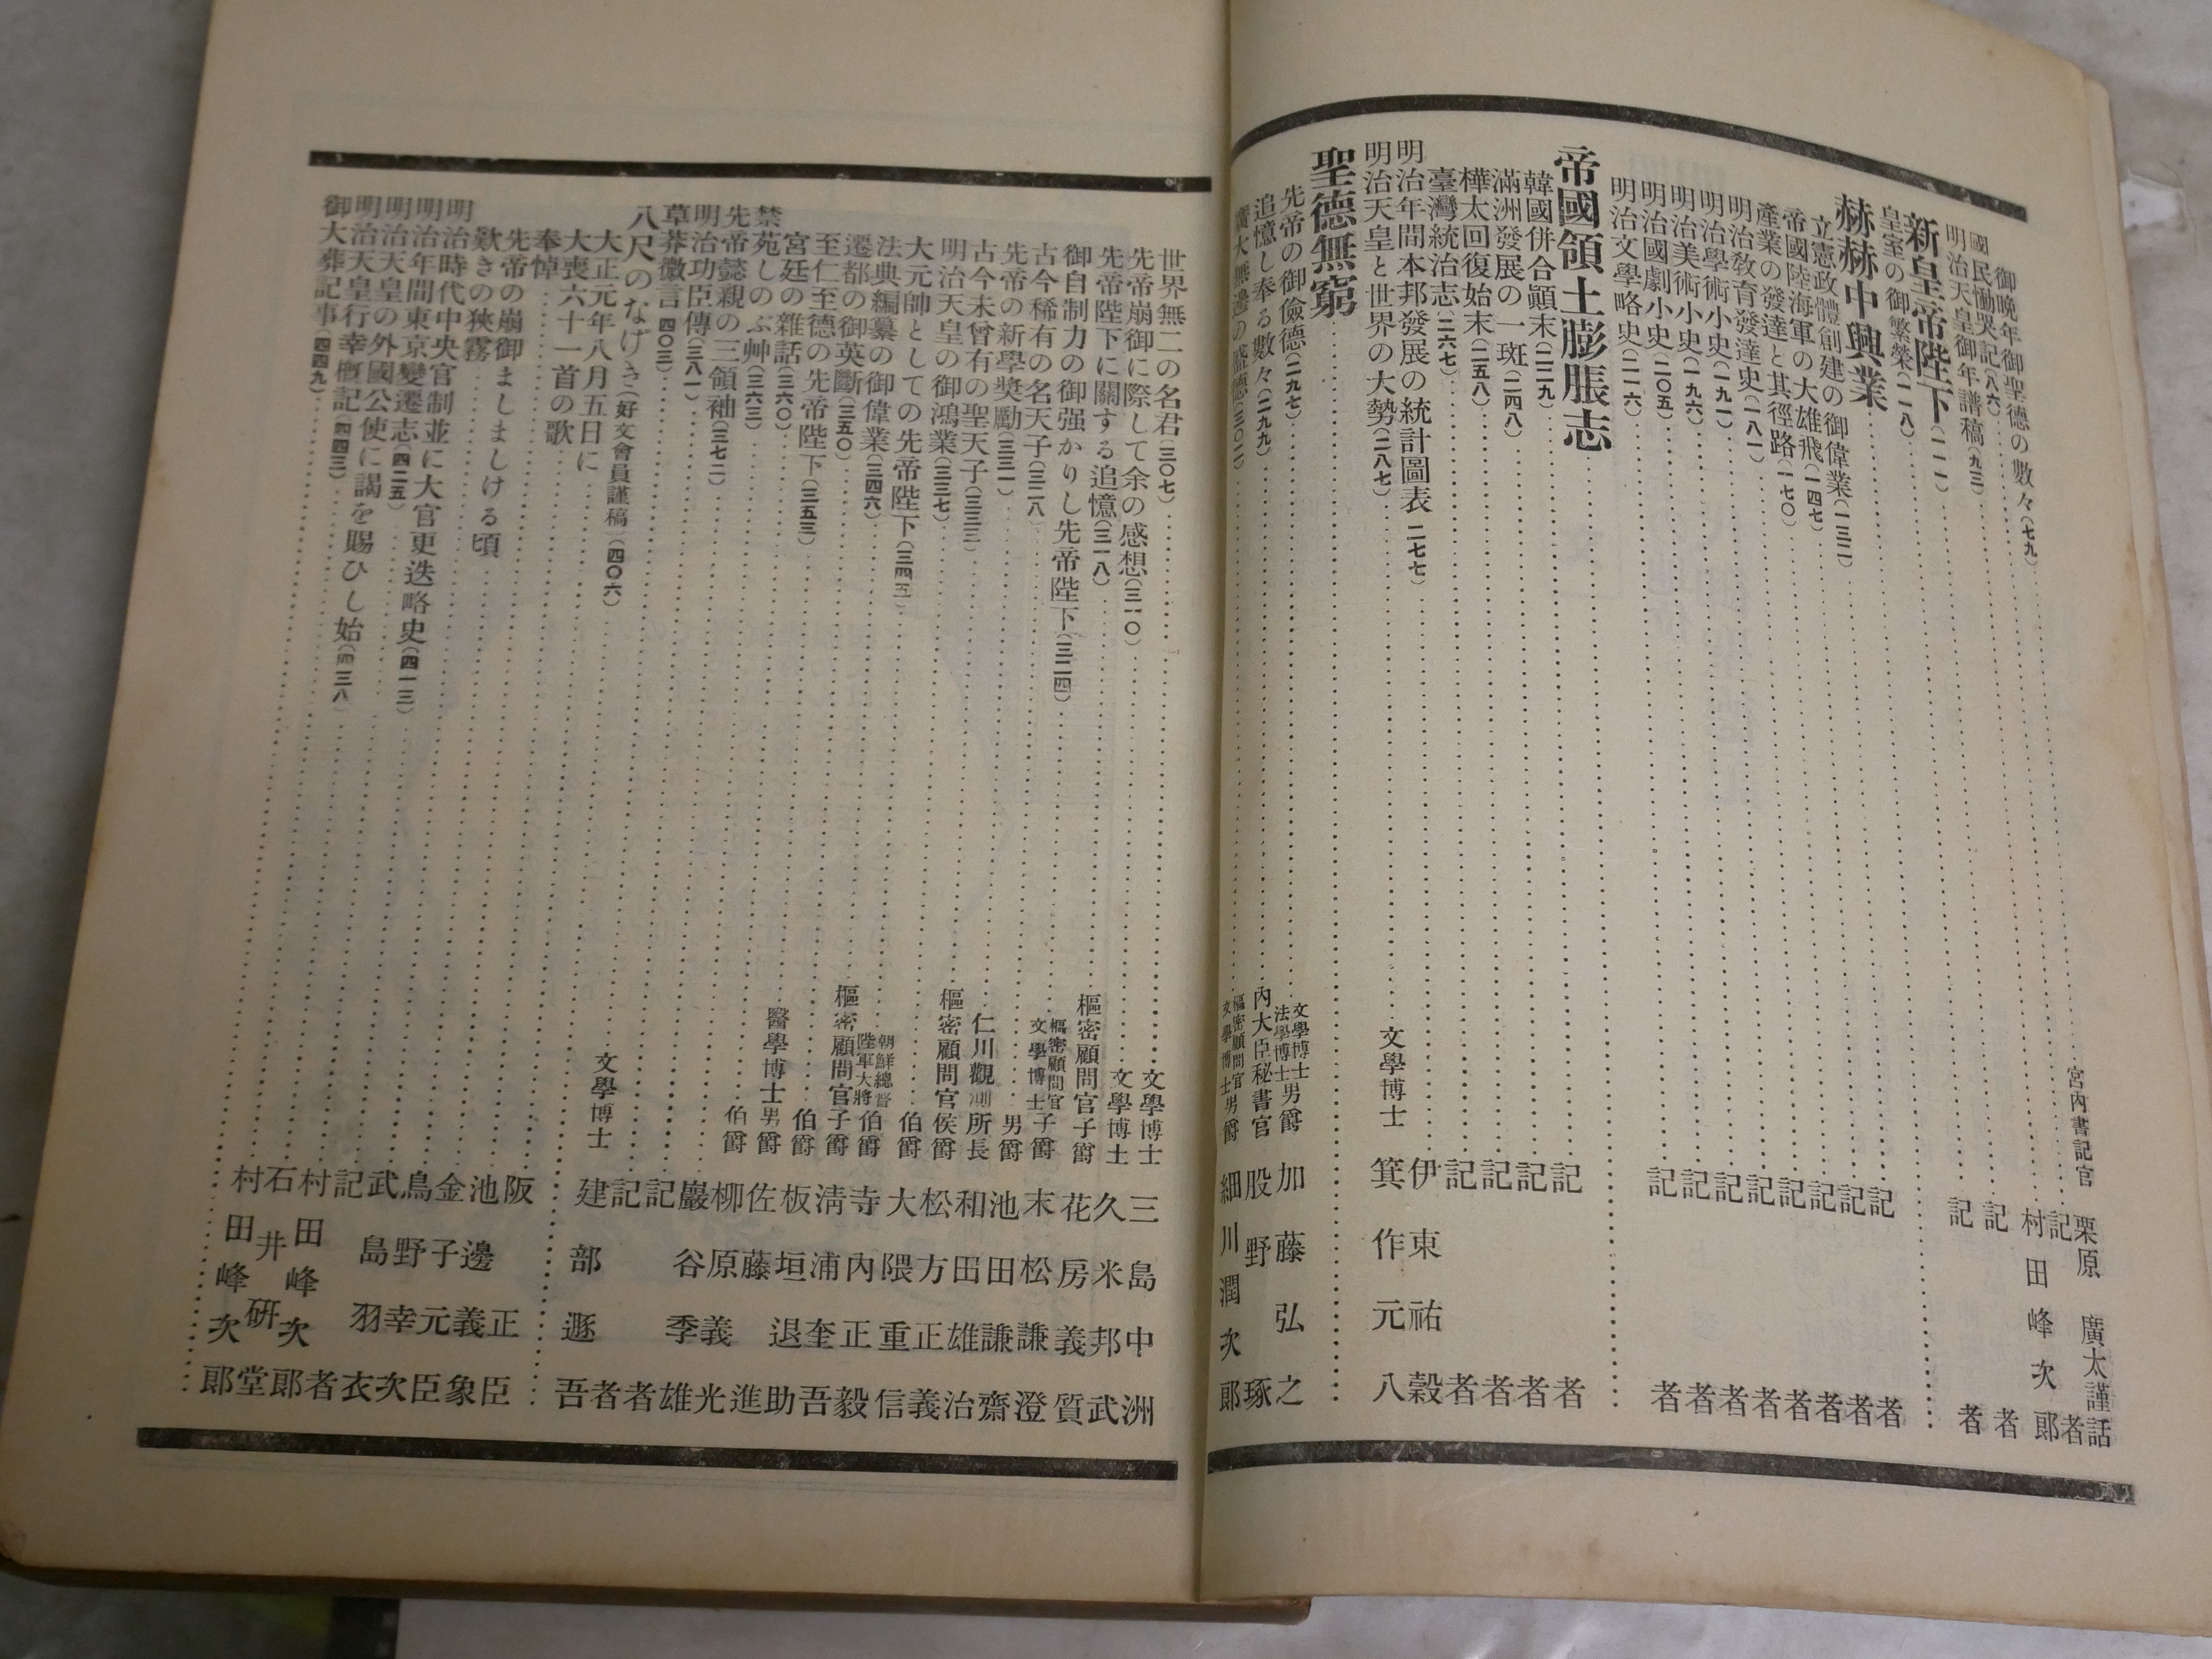 御晩年御聖德の數々(七九) 宮內書記官 栗原廣太謹話
國民慟哭記(八六) 記者
明治天皇御年譜稿(九三) 村田峰次郎
新皇帝陛下(一一一) 記者
皇室の御繁榮(一一八) 記者
赫赫中興業
立憲政體創建の御偉業(一三二) 記者
帝國陸海軍の大雄飛(一四七) 記者
產業の發達と其徑路(一七〇) 記者
明治敎育發達史(一八一) 記者
明治學術小史(一九一) 記者
明治美術小史(一九六) 記者
明治國劇小史(二〇五) 記者
明治文學略史(二一六) 記者
帝國領土膨脹志
韓國併合顚末(二二九) 記者
滿洲發展の一斑(二四八) 記者
樺太回復始末(二五八) 記者
臺灣統治志(二六七) 記者
明治年間本邦發展の統計圖表 二七七 伊東祐穀
明治天皇と世界の大勢(二八七) 文學博士 箕作元八
聖德無窮
先帝の御儉德(二九七) 文學博士 法學博士 男爵 加藤弘之
追憶し奉る數々(二九九) 內大臣秘書官 股野琢
廣大無邊の盛德(三〇二) 樞密顧問官 文學博士 男爵 細川潤次郎
世界無二の名君(三〇七) 文學博士 三島中洲
先帝崩御に際して余の感想(三一〇) 文學博士 久米邦武
先帝陛下に關する追憶(三一八) 樞密顧問官子爵 花房義質
御自制力の御强かりし先帝陛下(三二四) 樞密顧問官 文學博士 子爵 末松謙澄
古今稀有の名天子(三二八) 男爵 池田謙齋
先帝の新學奬勵(三三一) 仁川觀測所長 和田雄治
古今未曾有の聖天子(三三三) 樞密顧問官侯爵 松方正義
明治天皇の御鴻業(三三七) 伯爵 大隈重信
大元帥としての先帝陛下(三四三) 朝鮮總督 陸軍大將 伯爵 寺內正毅
法典編纂の御偉業(三四六) 樞密顧問官子爵 淸浦奎吾
遷都の御英斷(三五〇) 伯爵 板垣退助
至仁至德の先帝陛下(三五三) 醫學博士男爵 佐藤進
宮廷の雜話(三六〇) 伯爵 柳原義光
禁苑しのぶ艸(三六三) 巖谷季雄
先帝懿親の三領袖(三七二) 記者
明治功臣傳(三八一) 記者
草莽微言(四〇三) 文學博士 建部遯吾
八尺のなげき(好文會員謹稿)(四〇六)
大正元年八月五日に 阪正臣
大喪六十一首の歌 池邊義象
奉悼 金子元臣
先帝の崩御ましましける頃 鳥野幸次
歎きの狹霧 武島羽衣
明治時代中央官制並に大官更迭略史(四一三) 記者
明治年間東京變遷志(四二五) 村田峰次郎
明治天皇の外國公使に謁を賜ひし始(四三八) 石井研堂
明治天皇行幸概記(四四三) 村田峰次郎
御大葬記事(四四九)